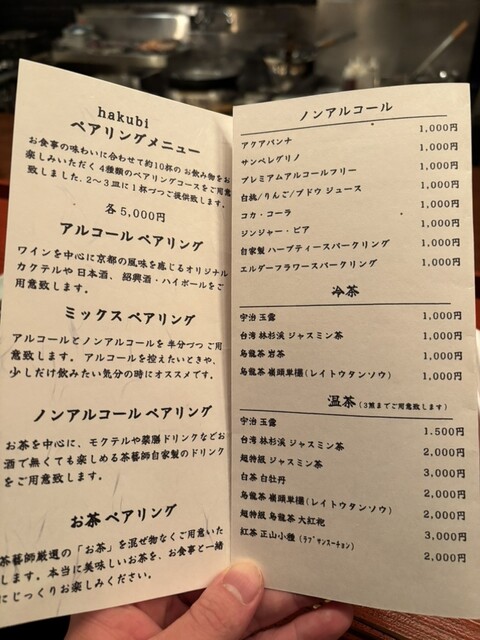 hakubi
ペアリングメニュー
お食事の味わいに合わせて約10杯のお飲み物をお
楽しみいただく4種類のペアリングコースをご用意
致しました。2〜3皿に1杯づつご提供致します。
各5,000円
アルコール ペアリング
ワインを中心に京都の風味を感じるオリジナル
カクテルや 日本酒、 紹興酒・ハイボールをご
用意致します。
ミックス ペアリング
アルコールとノンアルコールを半分づつ ご用
意致します。 アルコールを控えたいときや、
少しだけ飲みたい気分の時にオススメです。
ノンアルコール ペアリング
お茶を中心に、モクテルや薬膳ドリンクなどお
酒で無くても楽しめる茶藝師自家製のドリンク
をご用意致します。
お茶 ペアリング
茶藝師厳選の「お茶」を混ぜ物なくご用意いた
します。本当に美味しいお茶を、お食事と一緒
にじっくりお楽しみください。
ノンアルコール
アクアパンナ 1,000円
サンペレグリノ 1,000円
プレミアムアルコールフリー 1,000円
白桃/りんご/ブドウ ジュース 1,000円
コカ・コーラ 1,000円
ジンジャー・ビア 1,000円
自家製 ハーブティースパークリング 1,000円
エルダーフラワースパークリング 1,000円
冷茶
宇治 玉露 1,000円
台湾 林杉渓 ジャスミン茶 1,000円
烏龍茶 岩茶 1,000円
烏龍茶 嶺頭単欉(レイトウタンソウ) 1,000円
温茶 (3煎までご用意致します)
宇治 玉露 1.500円
台湾 林杉渓 ジャスミン茶 2,000円
超特級 ジャスミン茶 3,000円
白茶 白牡丹 2,000円
烏龍茶 嶺頭単欉(レイトウタンソウ) 2,000円
超特級 烏龍茶 大紅袍 3,000円
紅茶 正山小種 (ラプサンスーチョン) 2,000円